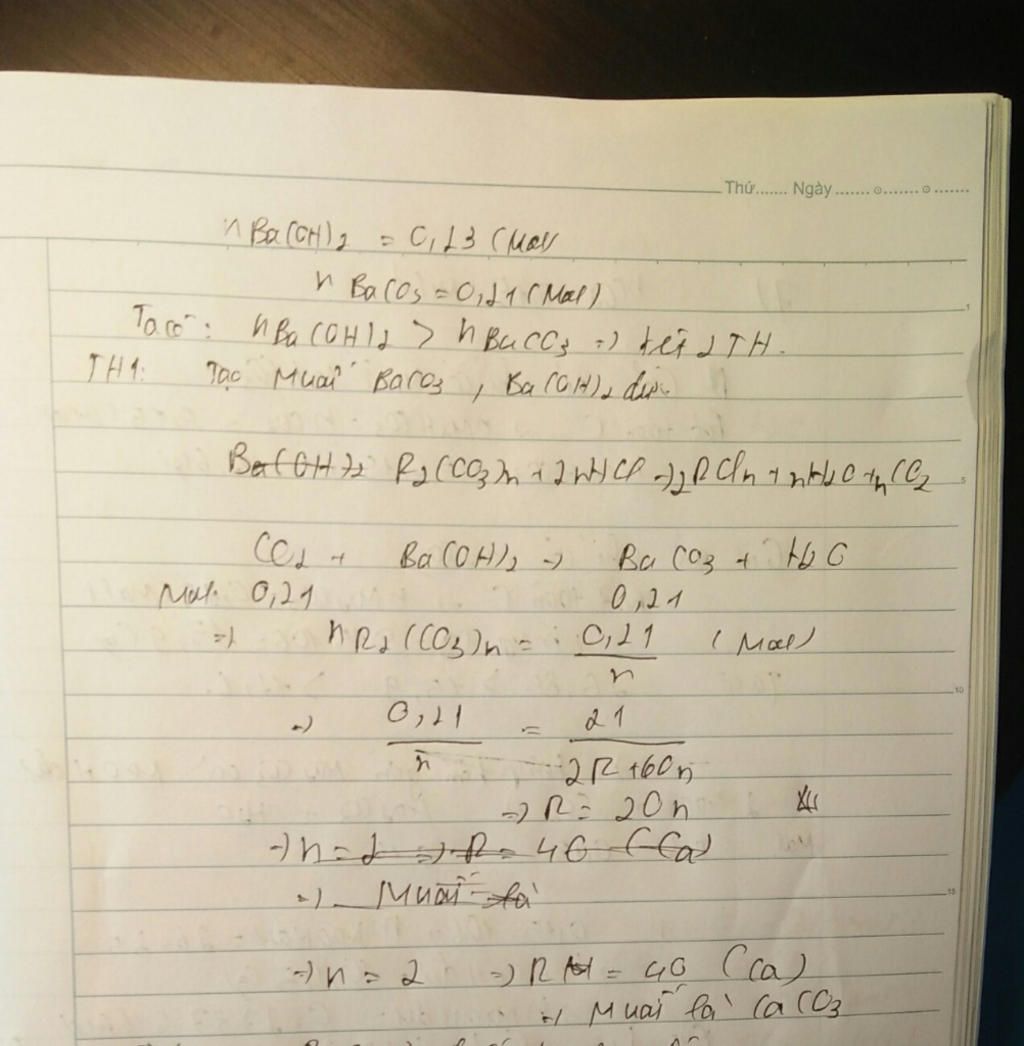 Thứ....... Ngày.......
n Ba(OH)2 = 0,23 (Mol)
n BaCO3 = 0,21 (Mol)
Ta có: n Ba(OH)2 > n BaCO3 => xét 2 TH.
TH1: Tạo Muối BaCO3, Ba(OH)2 dư.
Ba(OH)2 R2(CO3)n + 2nHCl -> 2RCln + nH2O + nCO2
CO2 + Ba(OH)2 -> BaCO3 + H2O
Mol: 0,21 0,21
=> n R2(CO3)n = 0,21/n (Mol)
=> 0,21/n = 21/2R+60n
=> R = 20n
=> n = 2 => R = 40 (Ca)
=> Muối là
=> n = 2 => R = 40 (Ca)
=> Muối là CaCO3